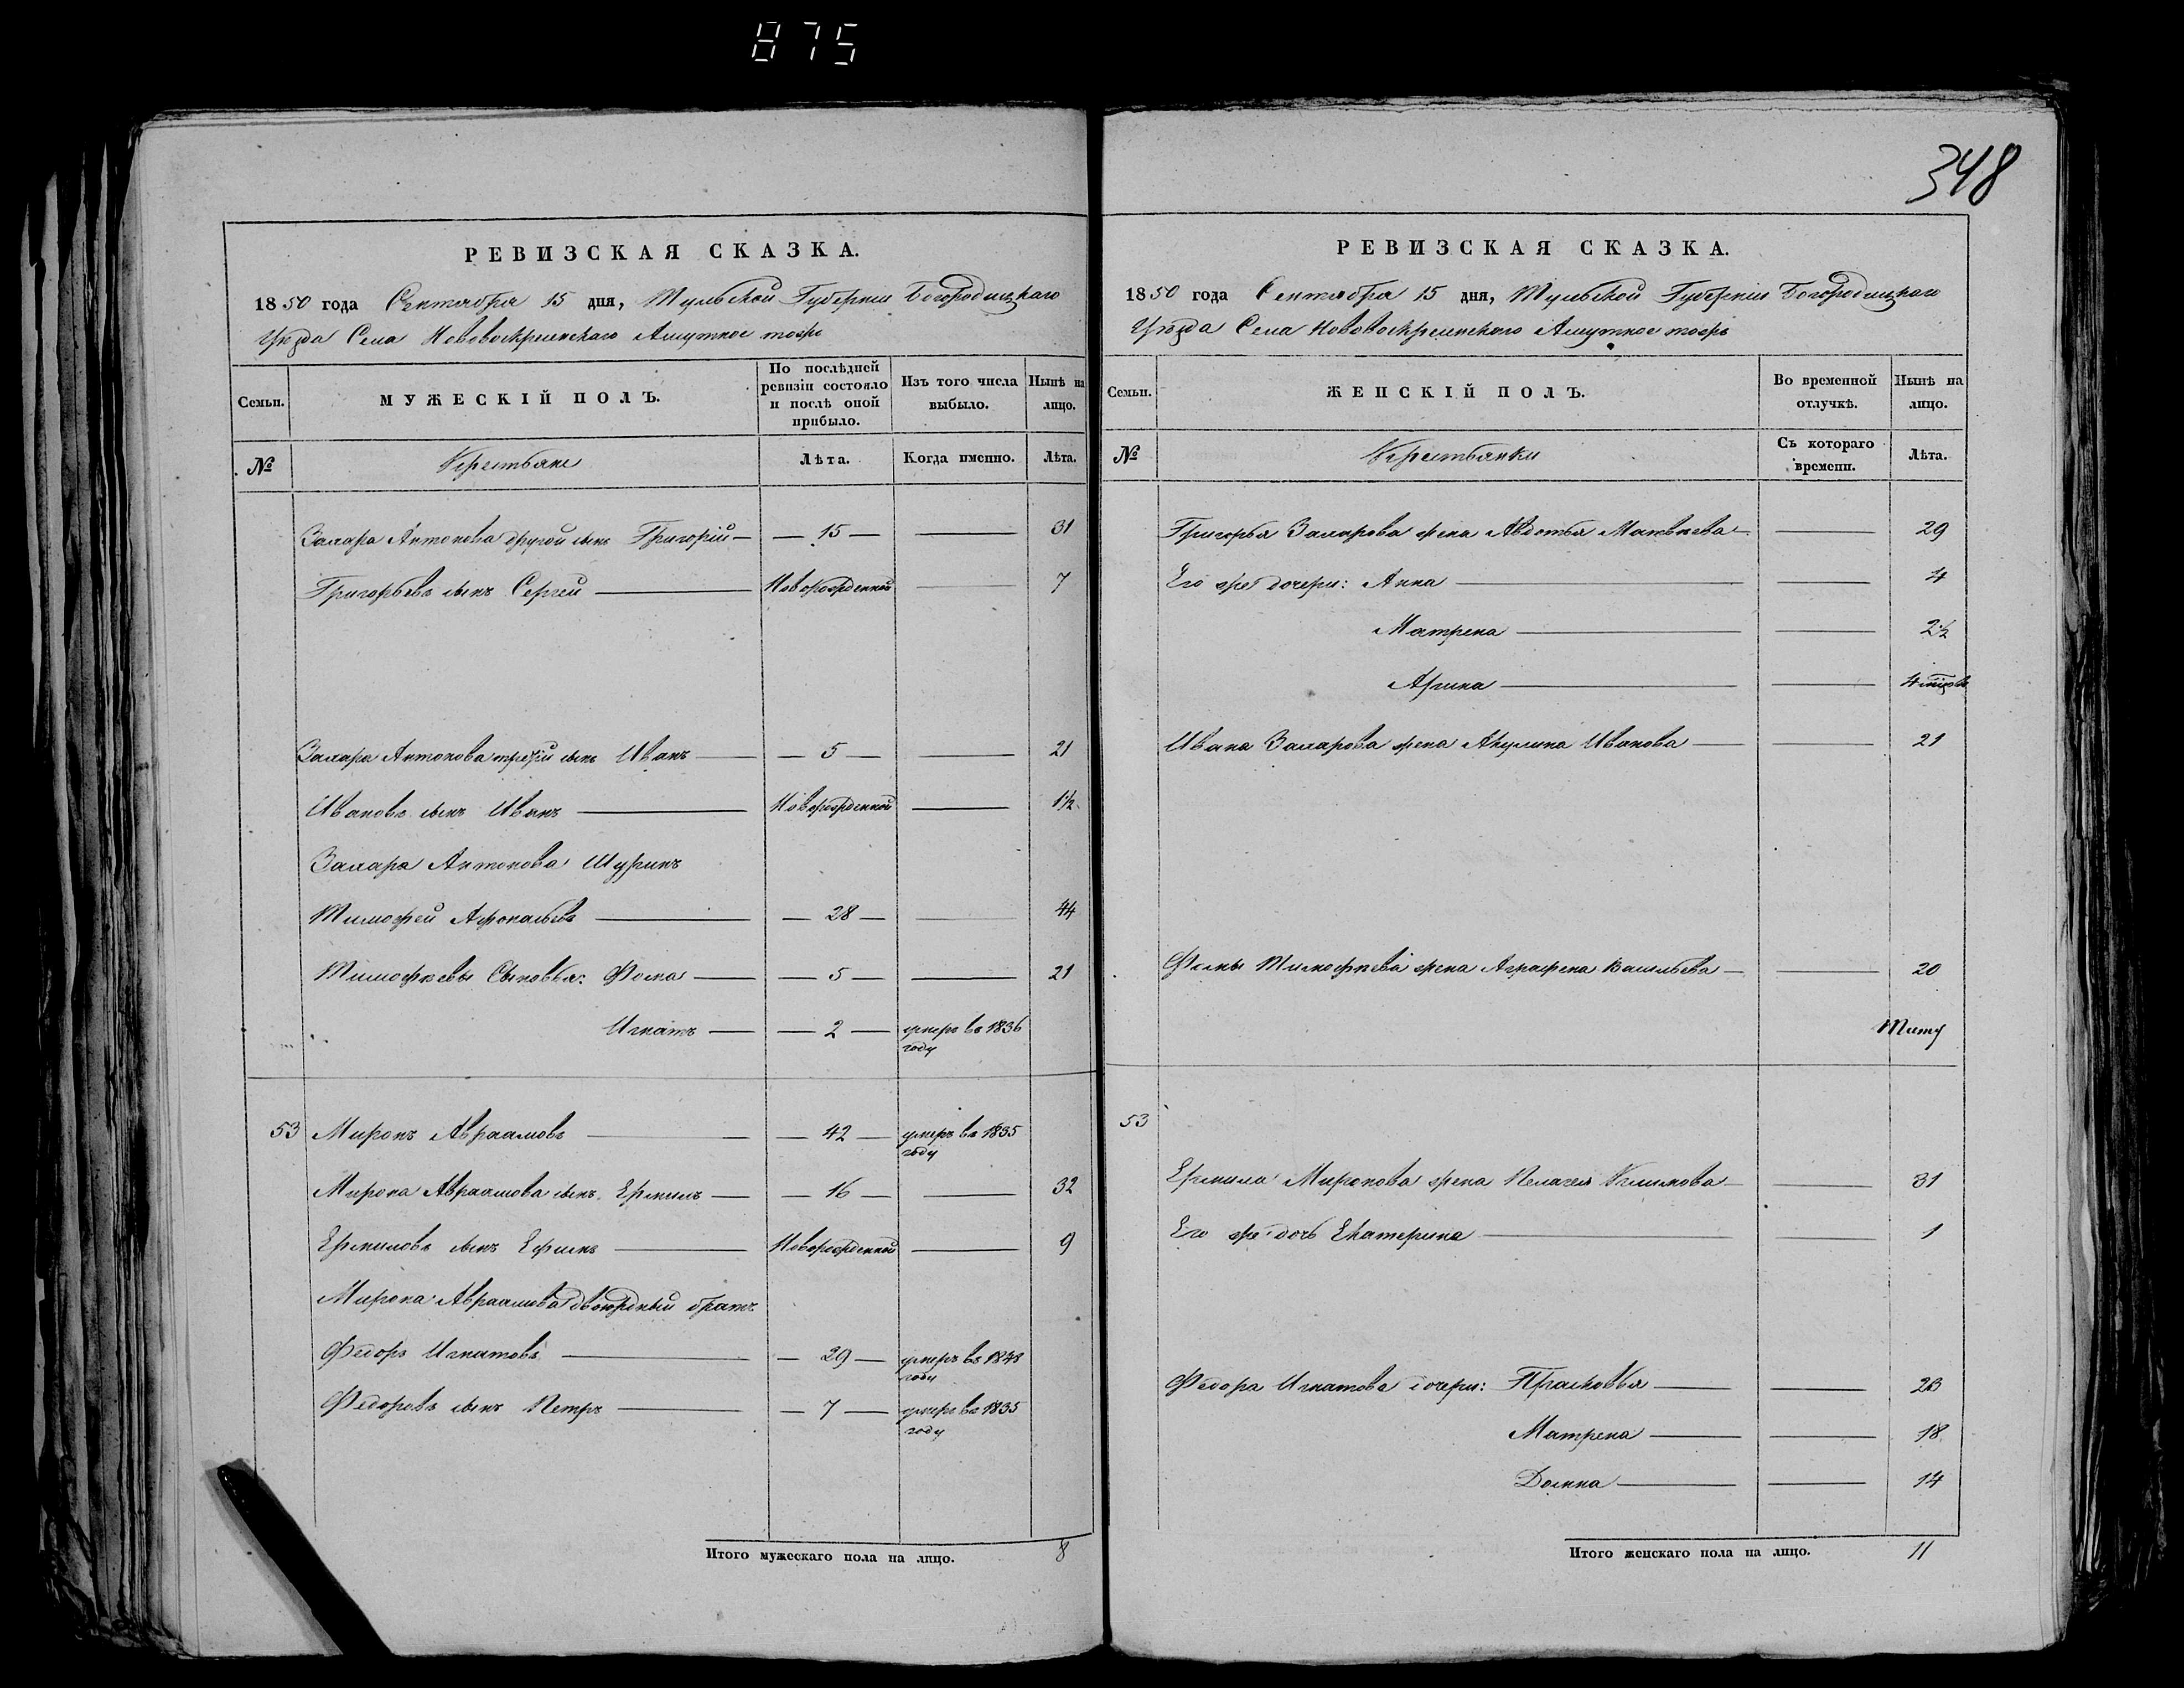 875
348
РЕВИЗСКАЯ СКАЗКА.
1850 года Сентября 15 дня, Тульской Губернии Богородицкаго
Уѣзда Села Нововоскресенскаго тожъ
Семьи.
МУЖЕСКІЙ ПОЛЪ.
По послѣдней ревизіи состояло и послѣ оной прибыло.
Изъ того числа выбыло.
Нынѣ на лицо.
№
Крестьяне
Лѣта.
Когда именно.
Лѣта.
Захара Антонова другой сынъ Григорій — 15 — 31
Григорьевъ сынъ Сергей Новорожденной 7
Захара Антонова третій сынъ Иванъ — 5 — 21
Ивановъ сынъ Иванъ Новорожденной 1½
Захара Антонова Шуринъ
Тимофей Афонасьевъ — 28 — 44
Тимофѣевы Сыновья: Фома — 5 — 21
Игнатъ — 2 — умеръ въ 1836
году
53 Миронъ Авраамовъ — 42 — умеръ въ 1835
году
Мирона Авраамова сынъ Ермилъ — 16 — 32
Ермиловъ сынъ Ефимъ Новорожденной 9
Мирона Авраамова двоюрдный братъ
Федоръ Игнатовъ — 29 — умеръ въ 1848
году
Федоровъ сынъ Петръ — 7 — умеръ въ 1835
году
Итого мужескаго пола на лицо. 8
РЕВИЗСКАЯ СКАЗКА.
1850 года Сентября 15 дня, Тульской Губернии Богородицкаго
Уѣзда Села Нововоскресенскаго тожъ
Семьи.
ЖЕНСКІЙ ПОЛЪ.
Во временной отлучкѣ.
Нынѣ на лицо.
№
Крестьянки
Съ котораго времени.
Лѣта.
Григорья Захарова жена Авдотья Матвѣева 29
Его же дочери: Анна 4
Матрена 2½
Арина 4
Ивана Захарова жена Акулина Иванова 21
Фомы Тимофѣева жена Аграфена Васильева 20
53
Ермила Миронова жена Пелагея Климова 31
Его же дочь Екатерина 1
Федора Игнатова дочери: Прасковья 23
Матрена 18
Домна 14
Итого женскаго пола на лицо. 11